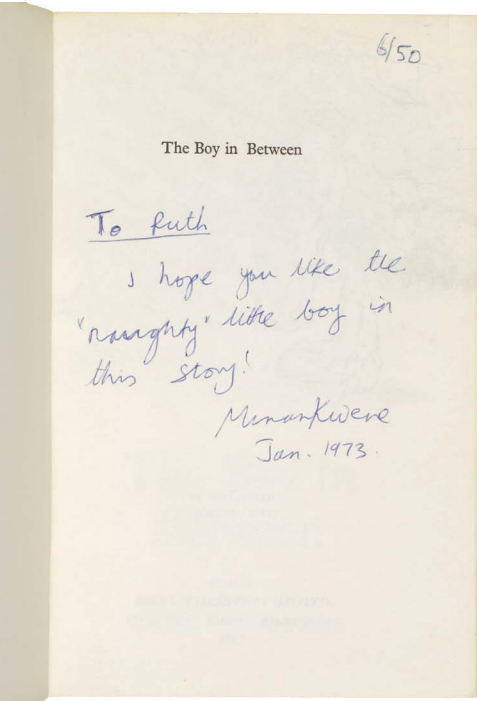 6/50
The Boy in Between
To Ruth
I hope you like the
"naughty" little boy in
this story!
Jan. 1973.